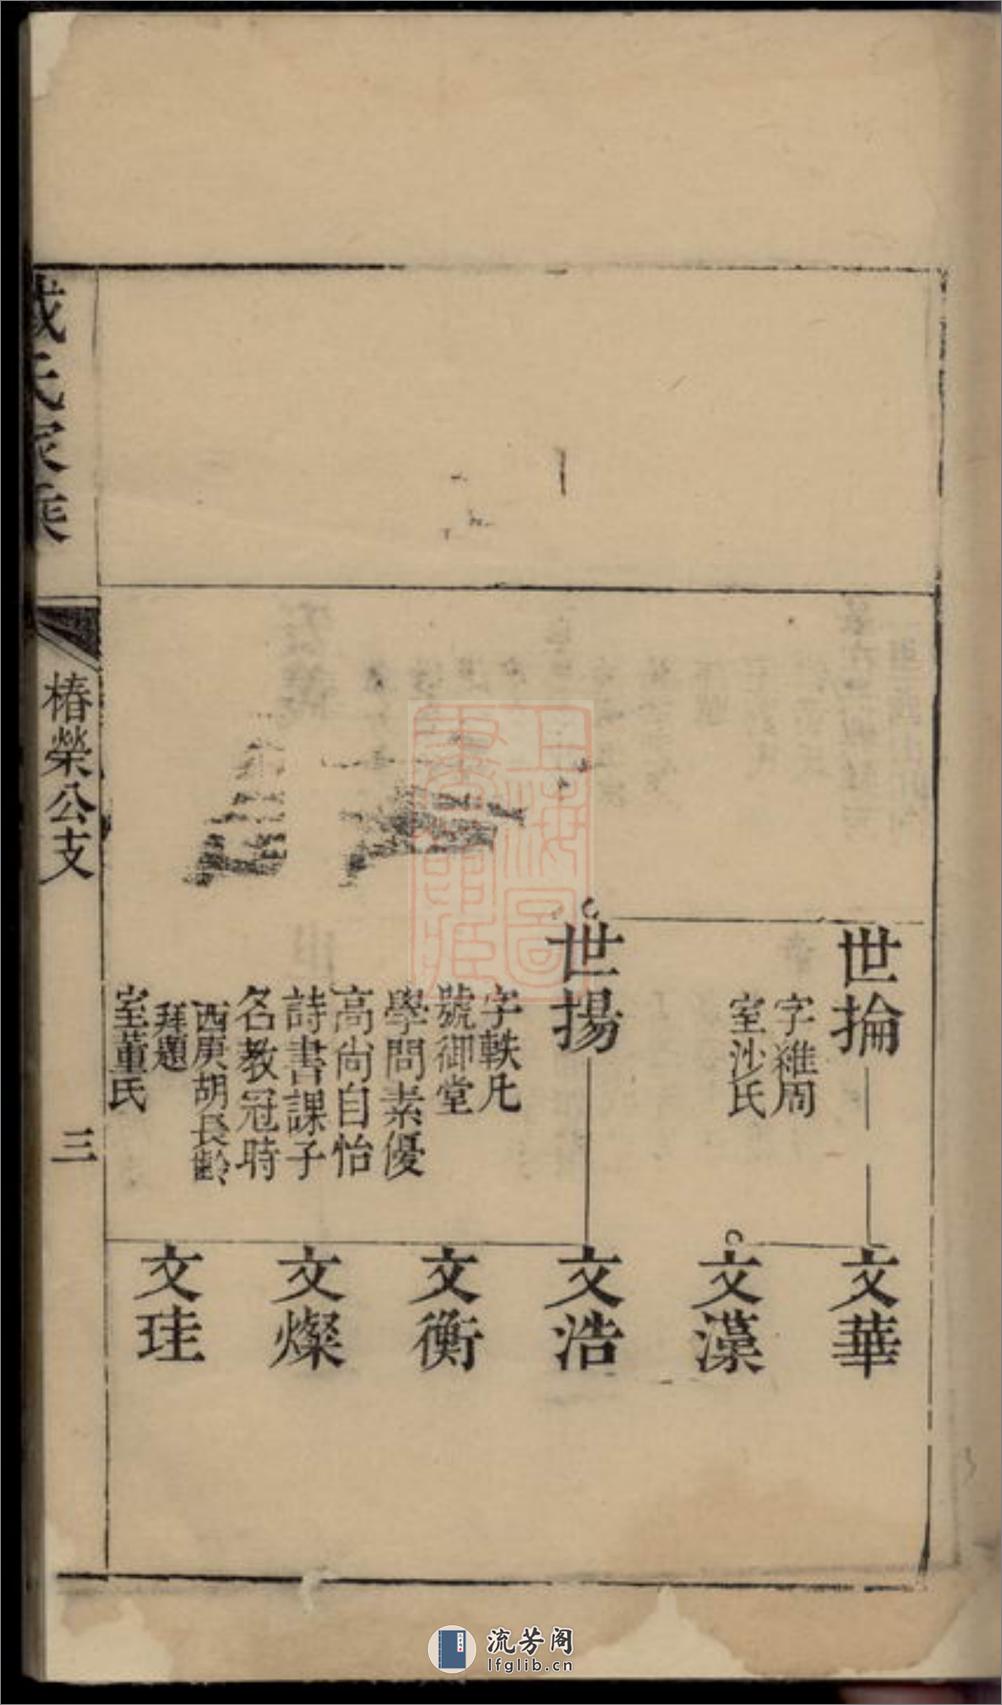 世掄
字雒周
室沙氏
世揚
字軼凡
號御堂
學問素優
高尚自怡
詩書課子
名教冠時
西庚胡長齡
拜題
室董氏
文華
文藻
文浩
文衡
文燦
文珪
氏家乘
椿榮公支
三
上海圖書館藏
流芳阁
lfglib.cn